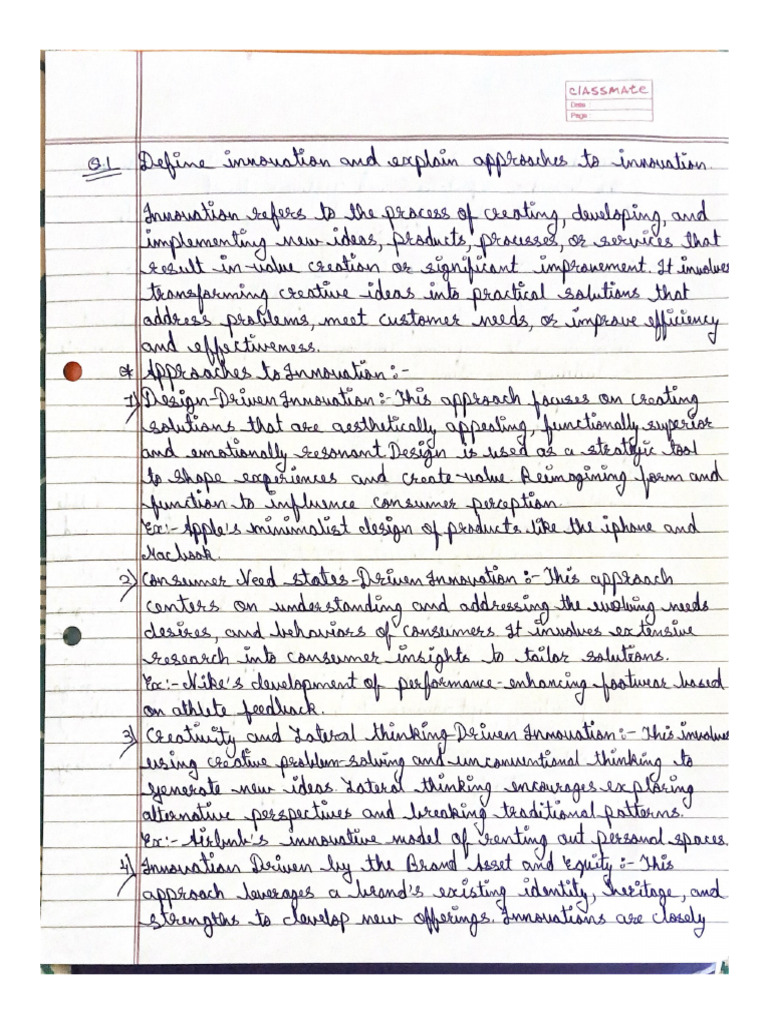 CLASSMATE
Date
Page
Q.1. Define innovation and explain approaches to innovation.
Innovation refers to the process of creating, developing, and
implementing new ideas, products, processes, or services that
result in value creation or significant improvement. It involves
transforming creative ideas into practical solutions that
address problems, meet customer needs, or improve efficiency
and effectiveness.
* Approaches to Innovation:-
1) Design-Driven Innovation:- This approach focuses on creating
solutions that are aesthetically appealing, functionally superior
and emotionally resonant. Design is used as a strategic tool
to shape experiences and create value. Reimagining form and
function to influence consumer perception.
Ex:- Apple's minimalist design of products like the iphone and
Macbook.
2) Consumer Need states-Driven Innovation:- This approach
centers on understanding and addressing the evolving needs
desires, and behaviors of consumers. It involves extensive
research into consumer insights to tailor solutions.
Ex:- Nike's development of performance-enhancing footwear based
on athlete feedback.
3) Creativity and Lateral thinking-Driven Innovation:- This involves
using creative problem-solving and unconventional thinking to
generate new ideas. Lateral thinking encourages exploring
alternative perspectives and breaking traditional patterns.
Ex:- Airbnb's innovative model of renting out personal spaces.
4) Innovation Driven by the Brand Asset and Equity:- This
approach leverages a brand's existing identity, heritage, and
strengths to develop new offerings. Innovations are closely